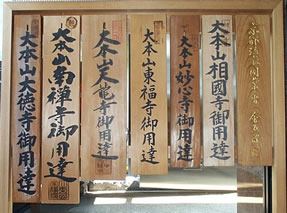 大本山相國寺御用達
大本山妙心寺御用達
大本山東福寺御用達
大本山天龍寺御用達
大本山南禅寺御用達
大本山大徳寺御用達